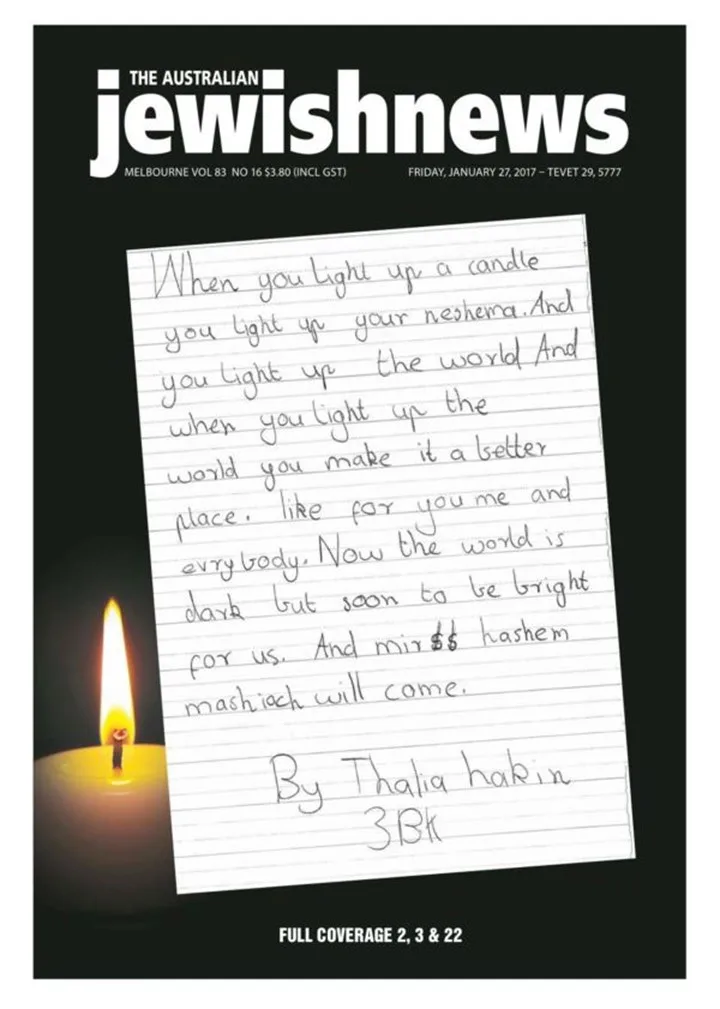 THE AUSTRALIAN
jewishnews
MELBOURNE VOL 83 NO 16 $3.80 (INCL GST)
FRIDAY, JANUARY 27, 2017 – TEVET 29, 5777
When you light up a candle
you light up your neshema. And
you light up the world And
when you light up the
world you make it a better
place. like for you me and
evrybody. Now the world is
dark but soon to be bright
for us. And mir$$ hashem
mashiach will come.
By Thalia hakin
3BK
FULL COVERAGE 2, 3 & 22